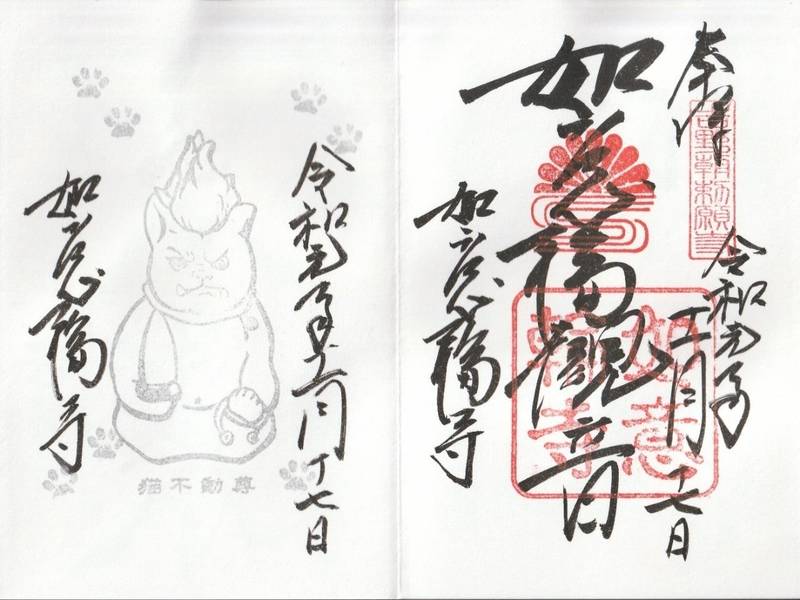 奉拝
令和元年十一月十七日
如意輪観音
如意輪寺
如意輪寺
令和元年十一月十七日
猫不動尊
如意輪寺